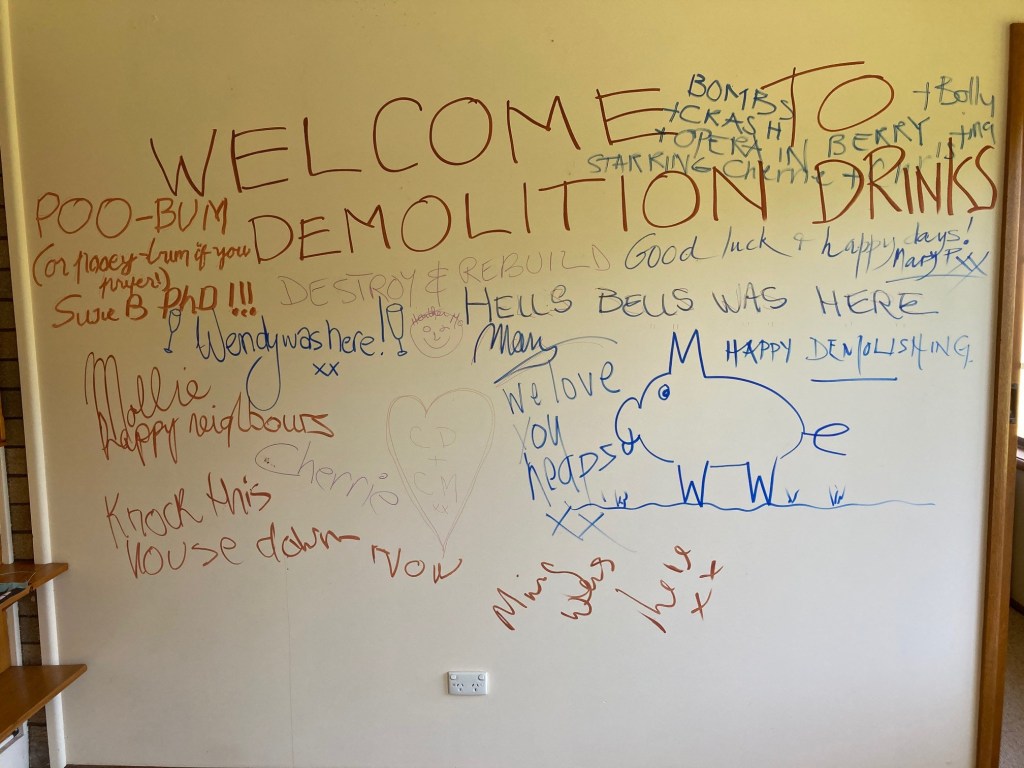 WELCOME TO
DEMOLITION DRINKS
BOMBS
+CRASH
+OPERA IN BERRY
STARRING Cherrie +
+ Bolly
POO-BUM
(or pooey-bum if you
prefer!)
Susie B PhD!!!
DESTROY & REBUILD
Good luck & happy days!
Mary F XX
HELLS BELLS WAS HERE
Wendy was here!
xx
HAPPY DEMOLISHING.
Mollie
happy neighbours
we love
you
heaps
XX
Cherrie
CD
+
CM
xx
Knock this
house down
Now
was
here
x+